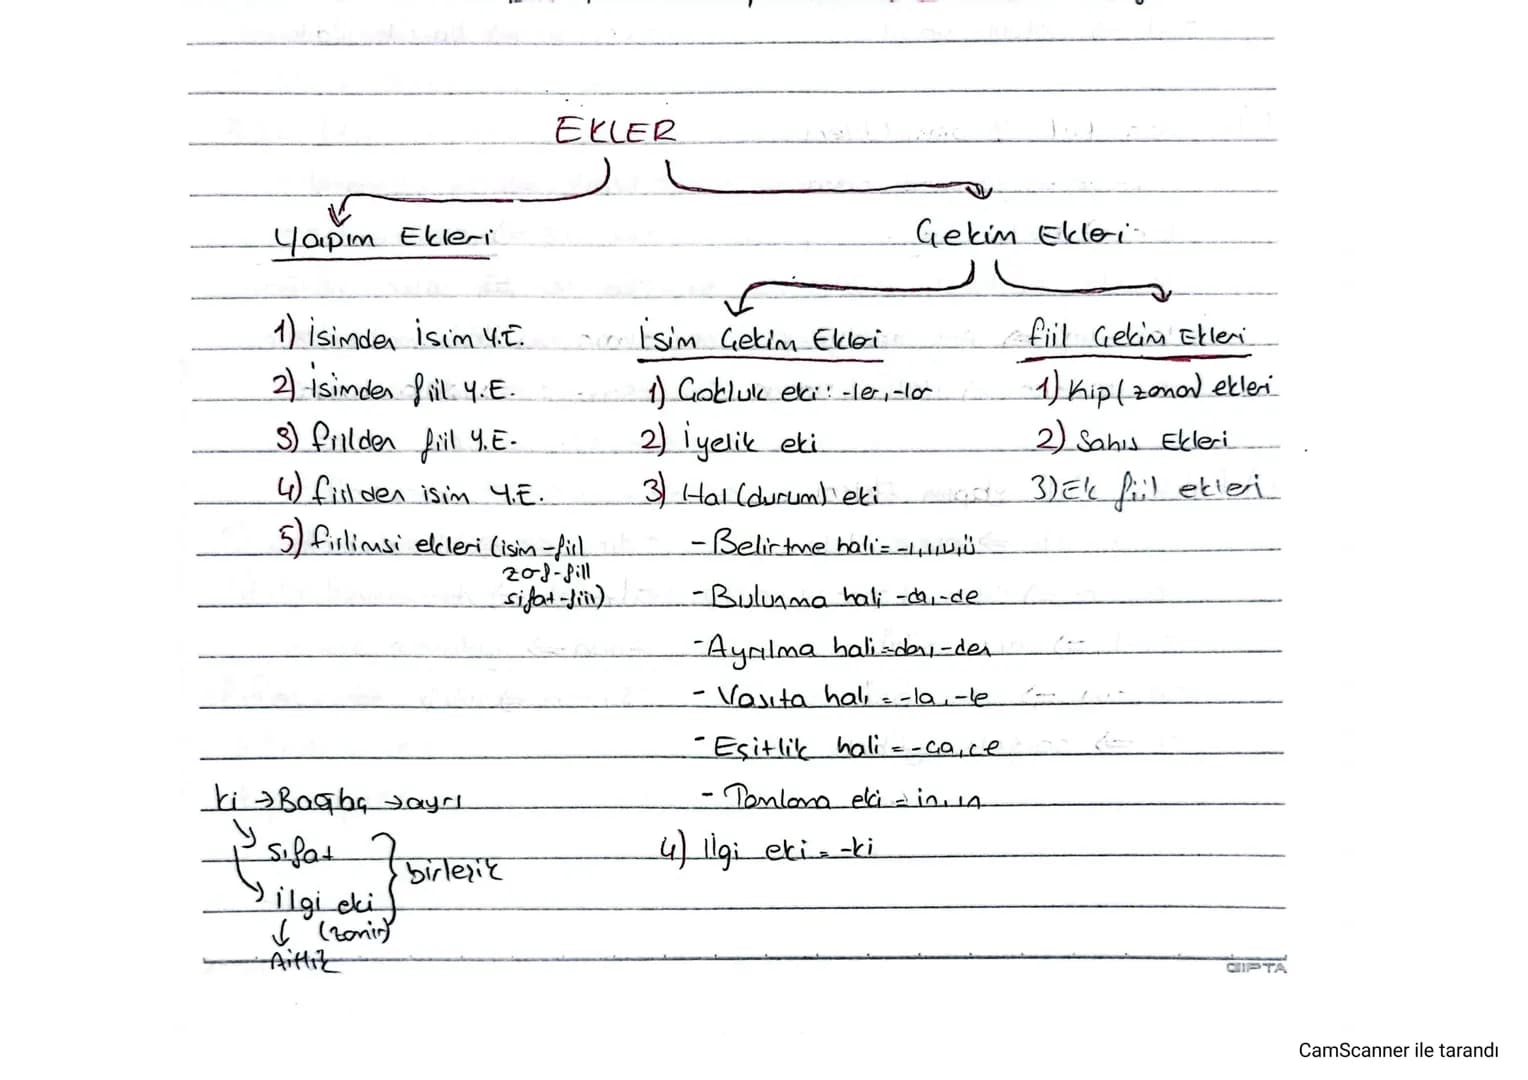 EKLER
Yapım Ekleri
Çekim Ekleri
1) İsimden İsim Y.E.
2) İsimden fiil Y.E.
3) fiilden fiil Y.E.
4) fiilden isim Y.E.
5) fiilimsi ekleri (isim-fiil
zarf-fiil
sıfat-fiil)
İsim Çekim Ekleri
1) Çokluk eki: -ler, -lar
2) İyelik eki
3) Hal (durum) eki
- Belirtme hali= -ı,i,u,ü
- Bulunma hali -da, -de
- Ayrılma hali = dan, -den
- Vasıta hali = -la, -le
- Eşitlik hali = -ça, ce
- Tamlama eki = in, ın
4) İlgi eki = -ki
fiil Çekim Ekleri
1) Kip (zaman) ekleri
2) Şahıs Ekleri
3) Ek fiil ekleri
ki → Bağlaç → ayrı
Sıfat
İlgi eki
(zamir)
birleşik
Aitlik
GIPTA
CamScanner ile tarandı